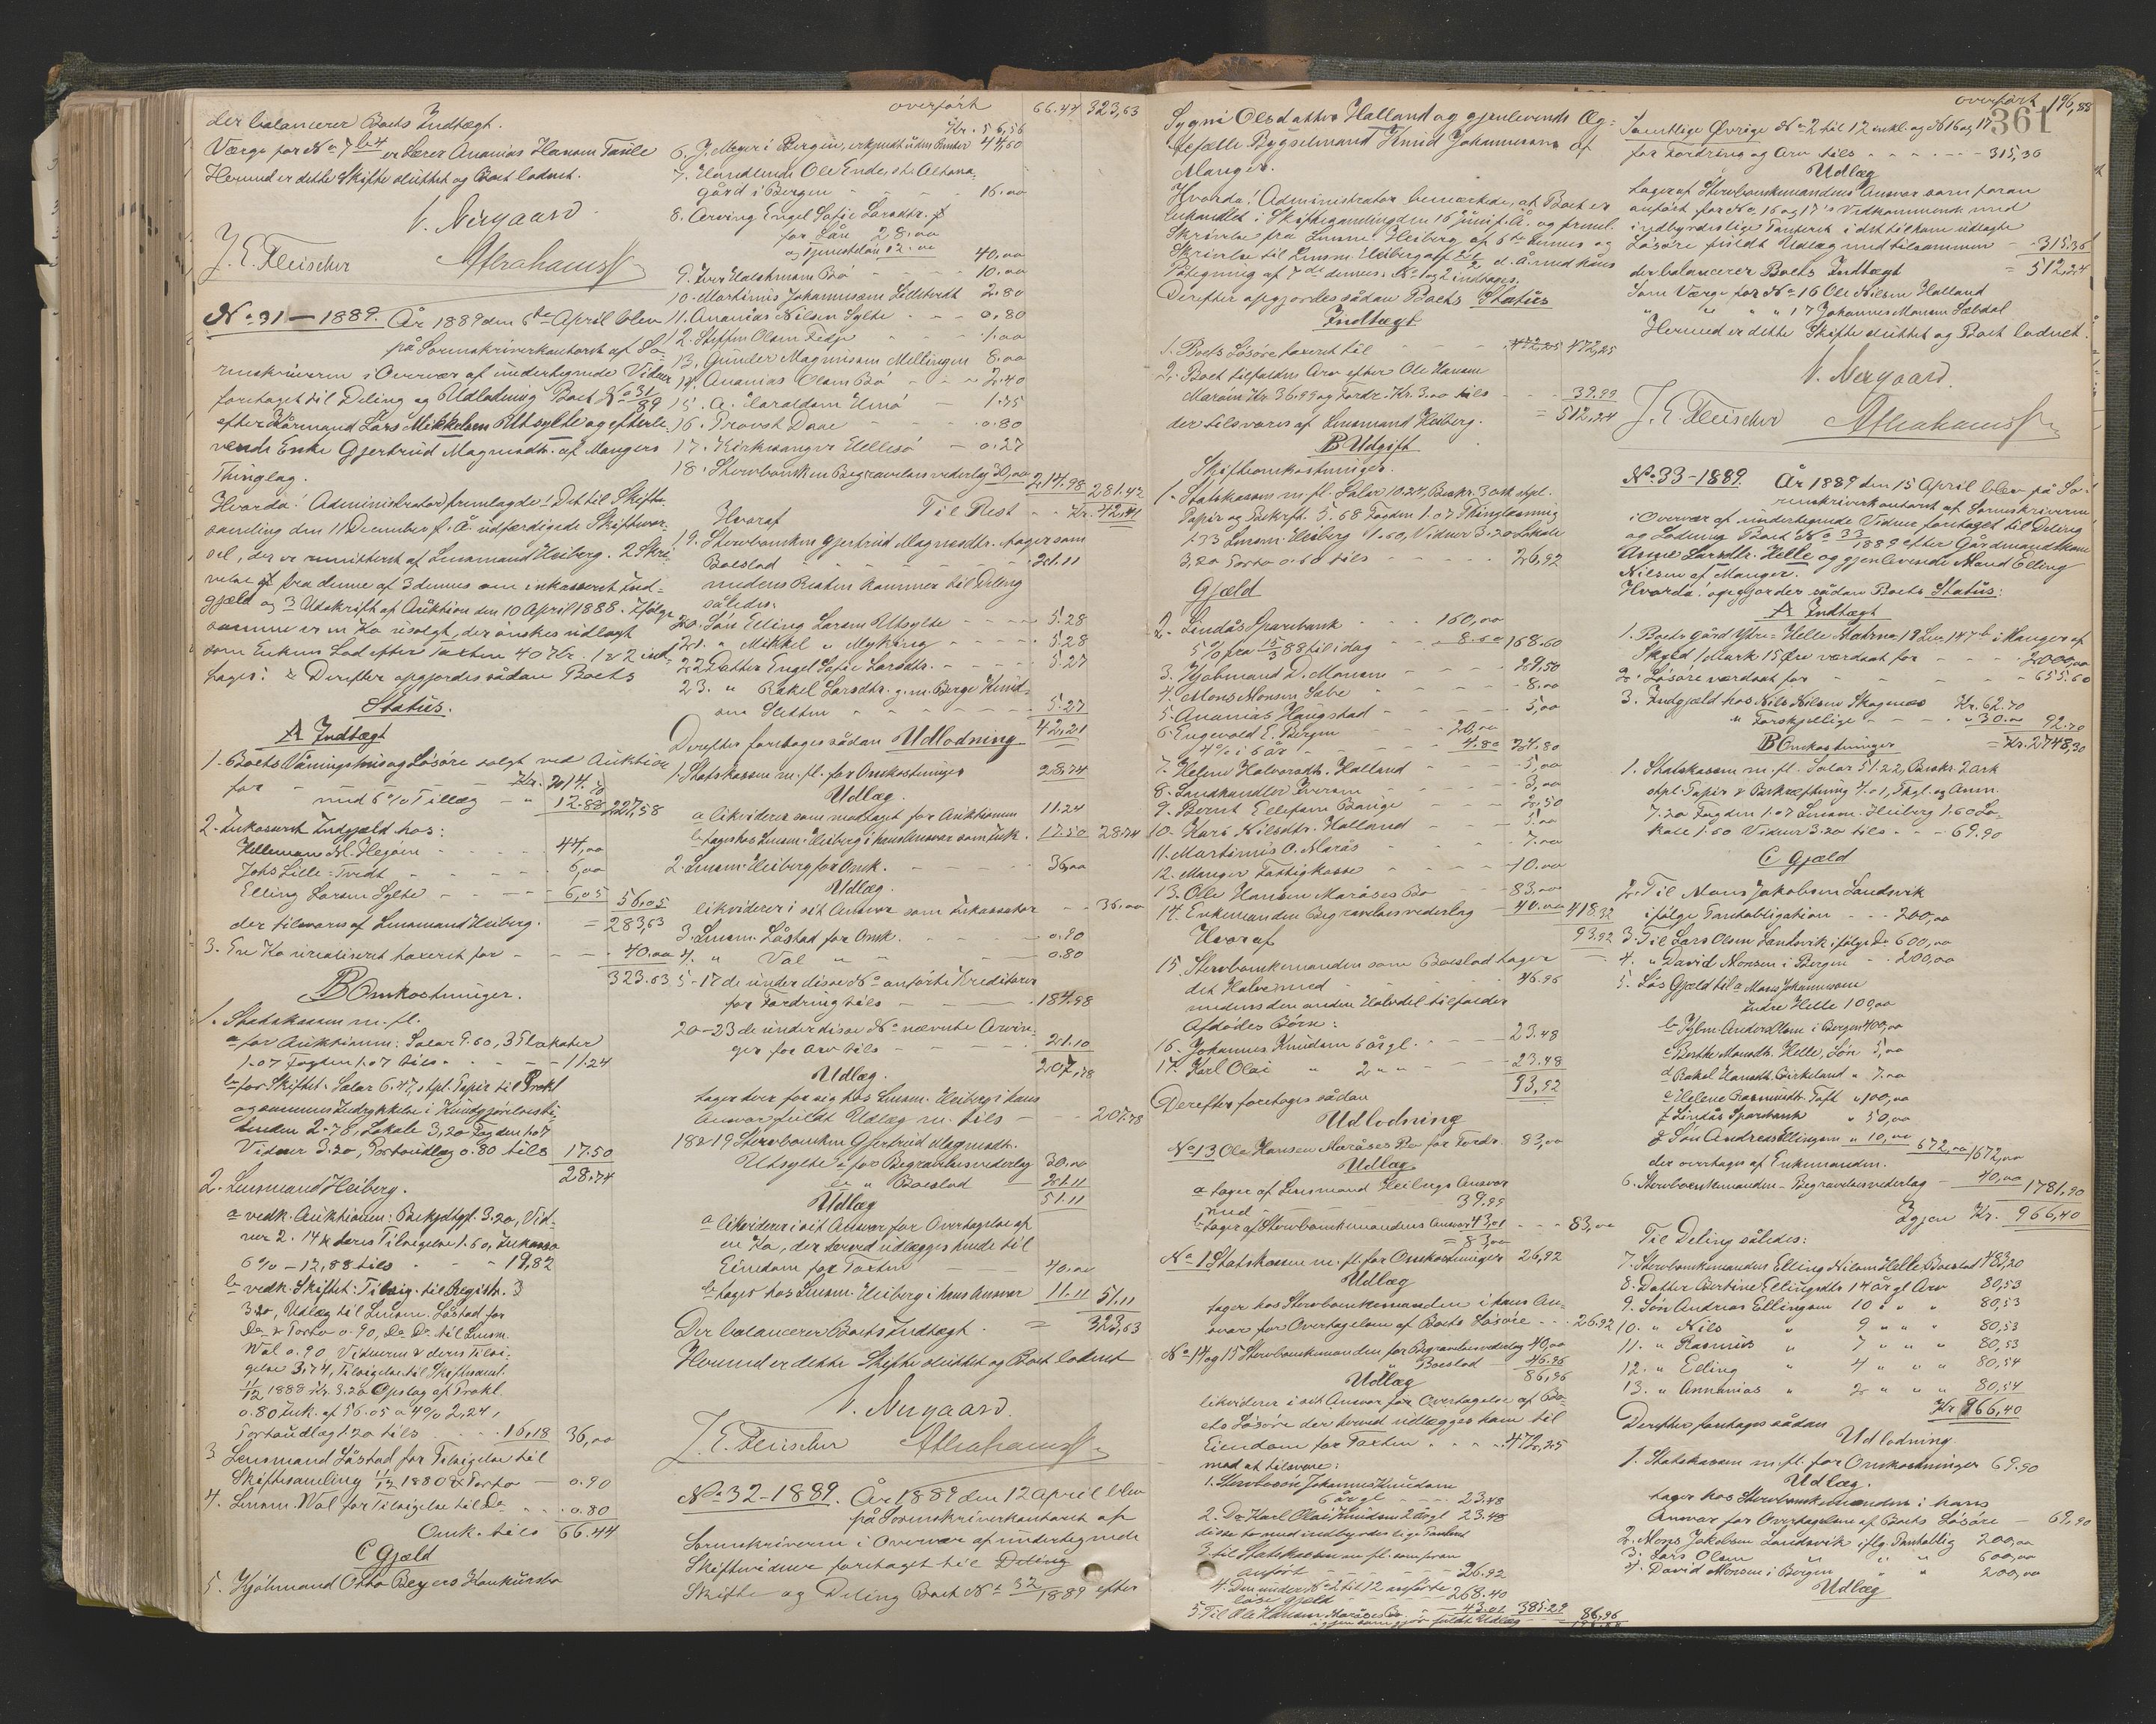 der balancerer Boets Indtægt.
Værge for No 7 b4 er Lærer Ananias Hansen Taule
Hermed er dette Skifte sluttet og Boet lodnet.
V. Nergaard.
J. E. Fleischer
No 31 – 1889. År 1889 den 5te April blev
på Sorenskriverkontoret af So-
renskriveren i Overvær af undertegnede Vidner
foretaget til Deling og Udlodning Boet No 31/89
efter Kårmand Lars Mikkelsen Utsylte og efterle-
vende Enke Gjertrud Magnesdtr. af Mangers
Thinglag.
Hvorda! Administrator fremlagde 1 Det til Skifte-
samling den 11 December f. Å. udfærdigede Skiftevar-
sel, der er remitteret af Lensmand Heiberg. 2 Skri-
velse fra denne af 3 dennes om inkasseret Ind-
gjæld og 3 Udskrift af Auktion den 10 April 1888. Ifølge
samme er en Ko usolgt, der ønskes udlagt
som Enkens Lod efter Taxten 40 Kr. 1 & 2 ind-
tages: Derefter opgjordes sådan Boets
Status.
A Indtægt
1. Boets Våningshus og Løsøre solgt ved Auktion
for - Kr. 214.70
med 6 % Tillæg - 12.88 227,58
2. Inkasseret Indgjæld hos:
44,00
Johs Lille-Tvedt - 6,00
Elling Larsen Sylte - 6,05 56,05
der tilsvares af Lensmand Heiberg. = 283,63
3. En Ko urealiseret taxeret for - 40,00
323.63
B Omkostninger.
1. Statskassen m. fl.
a for Auktionen: Salar 9.60, 3 Plakater
1.07 Fogden 1.07 tils. - 11.24
b for Skiftet: Salar 6.47, stpl. Papir til Prokl
og sammes Indrykkelse i Kundgjørelsesti-
tenden 2.78, Lokale 3,20 Fogden 1.07
Vidner 3.20, Portoudlæg 0.80 tils 17.50
28.74
2. Lensmand Heiberg.
a vedk. Auktionen: 3.20, Vid-
ner 2.14 & deres Tilsigelse 1.60, Inkasso
6 % – 12,88 tils - 19,82
b vedk. Skiftet: Tilsig. til Registr.
3.20, Udlæg til Lensm. Låstad for
Do & Porto 0.90, Do Do til Lensm.
Wal 0.90 Vidnerne & deres Tilsi-
gelse 3.74, Tilsigelse til Skiftesaml.
11/12 1888 Kr. 3.20 Opslag af Prokl.
0.80 Ink. af 56.05 a 4 % 2,24,
Portoudlæg 1.20 tils 16,18 36,00
3 Lensmand Låstad for Tilsigelse til
Skiftesamling 11/12 1888 & Porto - 0.90
4. Lensm. Wal for Tilsigelse til Do - 0.80
Omk. tils 66.44
C Gjæld
5. Kjøbmand Otto Beyers Konkursbo
overført 66.44 323,63
Kr. 56,56
6. J. Meyer i Bergen, erkjendt uden Renter 44,60
7. Handlende Ole Ende,
gård i Bergen - 16.00
8. Arving Engel Sofie Larsdtr.
for Lån 28.00
og Tjenesteløn 12.00 40,00
9. Iver Bø - 10.00
10. Martinus Johannesen 2.80
11. Ananias Nilsen Sylte - 0.80
12. Steffen Olsen Fedje - 1.00
13. Gunder Magnussen Mellingen 8.00
14. Ananias Olsen Bø - 2.40
15. A. Haraldsen - 1.75
16. Provst Daae - 0.80
17. Kirkesanger Hellesø - 0.27
18. Stervboenken Begravelsesvederlag 30,00 214.98 281.42
Hvoraf Til Rest - Kr. 42.21
19. Stervboenken Gjertrud Magnesdtr. tager som
Boeslod - 21.11
medens Resten kommer til Deling
således:
20. Søn Elling Larsen Utsylte - 5.28
21. " Mikkel " Myking - 5.28
22. Datter Engel Sofie Larsdtr. - 5.27
23. " Rakel Larsdtr. g. m. Berge Knud-
sen Sletten - 5.27
42,21
Derefter foretages sådan Udlodning
1. Statskassen m. fl. for Omkostninger 28.74
Udlæg.
a likvideres som modtaget for Auktionen 11.24
b tages hos Lensm. Heiberg i hans Ansvar som Ink. 17.50 28.74
2. Lensm. Heiberg for Omk. - 36,00
Udlæg.
likviderer i sit Ansvar som Inkassator - 36.00
3. Lensm. Låstad for Omk. - 0.90
4. " Val " " - 0.80
5–17 de under disse No anførte Kreditorer
for Fordring tils - 184.98
20–23 de under disse No nævnte Arvin-
ger for Arv tils - 21.10
207,78
Udlæg.
tager hver for sig hos Lensm. Heiberg i hans
Ansvar fuldt Udlæg m. tils - 207.78
18 & 19 Stervboenken Gjertrud Magnesdtr.
Utsylte a for Begravelsesvederlag 30.00
b " Boeslod 21.11
Udlæg 51.11
a likviderer i sit Ansvar for Overtagelse af
en Ko, der herved udlægges hende til
Eiendom for Taxten - 40.00
b tager hos Lensm. Heiberg i hans Ansvar 11.11 51.11
Der balancerer Boets Indtægt. = 323,63
Hermed er dette Skifte sluttet og Boet lodnet
V. Nergaard.
J. E. Fleischer
No 32 – 1889. År 1889 den 12 April blev
på Sorenskriverkontoret af
Sorenskriveren i Overvær af undertegnede
Skiftevidner foretaget til Deling
Skifte og Deling Boet No 32/1889 efter
361
Sygni Olsdatter Halland og gjenlevende Æg-
tefælle Bygselmand Knud Johannessen af
Manger.
Hvorda! Administrator bemærkede, at Boet er
behandlet i Skiftesamling den 16 Juni f. Å. og freml.
Skrivelse fra Lensm. Heiberg af 6te dennes og
Skrivelse til Lensm. Heiberg af d. A. med hans
Påtegning af 7de dennes. No 1 og 2 indtages.
Derefter opgjordes sådan Boets Status
Indtægt
1. Boets Løsøre taxeret til - 472,25 472,25
2. Boet tilfalden Arv efter Ole Hansen
Marøen Kr. 36.99 og Fordr. Kr. 3.00 tils - 39.99
der tilsvares af Lensmand Heiberg. = 512,24
B Udgift
Skifteomkostninger.
1. Statskassen m. fl. Salar 10.24, Beskr. 3 ark stpl.
Papir og Bekrft. 5.68 Fogden 1.07 Thinglæsning
1.33 Lensm. Heiberg 1.60, Vidner 3.20 Lokale
3,20 Porto 0.60 tils - 26,92
Gjæld
2. Lindås Sparebank - 160,00
5 % fra 15/3 88 til idag - 8.60 168.60
3. Kjøbmand D. Monsen - 29.50
4. Mons Monsen Sæbø - 8.00
5. Ananias Haugstad - 5,00
6. Engevold E. Bergen - 20,00
4 % i 6 år - 4.80 24.80
7. Helene Halvorsdtr. Halland - 5,00
8. Landhandler Iversen - 3,00
9. Bernt Ellefsen - 2.50
10. Kari Nilsdtr. Halland - 5.00
11. Martinus O. Marås - 7.00
12. Manger Fattigkasse - 10.00
13. Ole Hansen Maråses Bo - 83,00
14. Enkemanden Begravelsesvederlag - 40.00 418.32
Hvoraf 93.92
15. Stervboenkemanden som Boeslod tager
det Halve med - 46.96
medens den anden Halvdel tilfalder
Afdødes Børn:
16. Johannes Knudsen 6 år gl. - 23.48
17. Karl Olai " 2 " " - 23.48
93,92
Derefter foretages sådan
Udlodning
No 13 Ole Hansen Maråses Bo for Fordr. 83,00
Udlæg
a tager af Lensmand Heibergs Ansvar
med - 39,99
b tager af Stervboenkemandens Ansvar 43,01 - 83,00
= 83,00
No 1 Statskassen m. fl. for Omkostninger 26,92
Udlæg
tager hos Stervboenkemanden i hans An-
svar for Overtagelsen af Boets Løsøre - 26.92
No 14 og 15 Stervboenkemanden for Begravelsesvederlag 40,00
" Boeslod - 46.96
Udlæg 86,96
likviderer i sit Ansvar for Overtagelse af Bo-
ets Løsøre der herved udlægges ham til
Eiendom for Taxten - 472,25
mod at tilsvare:
1. Stervbosøn Johannes Knudsen
6 år gl. - 23.48
2. Do Karl Olai Knudsen 2 år gl 23.48
disse to med indbyrdes lige Panteret
3. til Statskassen m. fl. som foran
anført - 26.92
4. Den under No 2 til 12 anførte
løse Gjæld - 268.40
5. Til Ole Hansen Maråses Bo - 43.01 385.29 86,96
igjen som gjør fuldt Udlæg
overført 196,88
Samtlige Øvrige No 2 til 12 inkl. og No 16 og 17
for Fordring og Arv tils - 315,36
Udlæg
tager af Stervboenkemandens Ansvar som foran
anført for No 16 og 17's Vedkommende med
indbyrdes lige Panteret i det til ham udlagte
Løsøre fuldt Udlæg med tilsammen - 315.36
der balancerer Boets Indtægt = 512,24
Som Værge for No 16 Ole Nilsen Halland
" " " " 17 Johannes Monsen Sæbdal
Hermed er dette Skifte sluttet og Boet lodnet.
V. Nergaard.
J. E. Fleischer
No 33 – 1889. År 1889 den 15 April blev på So-
renskriverkontoret af Sorenskriveren
i Overvær af undertegnede Vidner foretaget til Deling
og Lodning Boet No 33/1889 efter Gårdmandskone
Anne Larsdtr. Helle og gjenlevende Mand Elling
Nilsen af Manger.
Hvorda! opgjordes sådan Boets Status:
A Indtægt
1. Boets Gård Ytre-Helle Matrno 19 Lno 147 b i Manger af
Skyld 1 Mark 15 Øre værdsat for - 2000,00
2. Løsøre værdsat for - 655.60
3. Indgjæld hos Nils Nilsen Skagenæs Kr. 62.70
" Forskjellige - " 30.00 92.70
B Omkostninger = Kr. 2748,30
1. Statskassen m. fl. Salar 51.22, Beskr. 2 ark
stpl. Papir & Bekræftning 4.01, Thgl. og Ann.
7.20 Fogden 1.07 Lensm. Heiberg 1.60 Lo-
kale 1.60 Vidner 3.20 tils - 69.90
C Gjæld
2. Til Mons Jakobsen Landsvik
ifølge Panteobligation - 200,00
3. Til Lars Olsen Landsvik ifølge Do 600,00
4. " David Monsen i Bergen - 200,00
5. Løs Gjæld til a Mons Johannessen
Indre Helle 100,00
b Kjbm. Anders Olsen i Bergen 400,00
c Berthe Monsdtr. Helle, Løn 5,00
d Rakel Hansdtr. Birkeland " 7.00
e Helene Rasmusdtr. Toft " 100,00
f Lindås Sparebank " 50,00
g Søn Andreas Ellingsen " 10,00 672,00 1672,00
der overtages af Enkemanden.
6. Stervboenkemanden – Begravelsesvederlag - 40,00 1781,90
Igjen Kr. 966,40
Til Deling således:
7. Stervboenkemanden Elling Nilsen Helle, Boeslod 483,20
8. Datter Ellingsdtr 14 år gl Arv 80,53
9. Søn Andreas Ellingsen 10 " " " 80,53
10. " Nils " 9 " " " 80,53
11. " Rasmus " 7 " " " 80,53
12. " Elling " 4 " " " 80,54
13. " Annanias " 2 " " " 80,54
Kr 966,40
Derefter foretages sådan
Udlodning.
1. Statskassen m. fl. for Omkostninger 69.90
Udlæg.
tager hos Stervboenkemanden i hans
Ansvar for Overtagelsen af Boets Løsøre - 69,90
2. Mons Jakobsen Landsvik iflg. Panteoblig 200,00
3. Lars Olsen " " " 600,00
4. David Monsen i Bergen " " 200,00
Udlæg